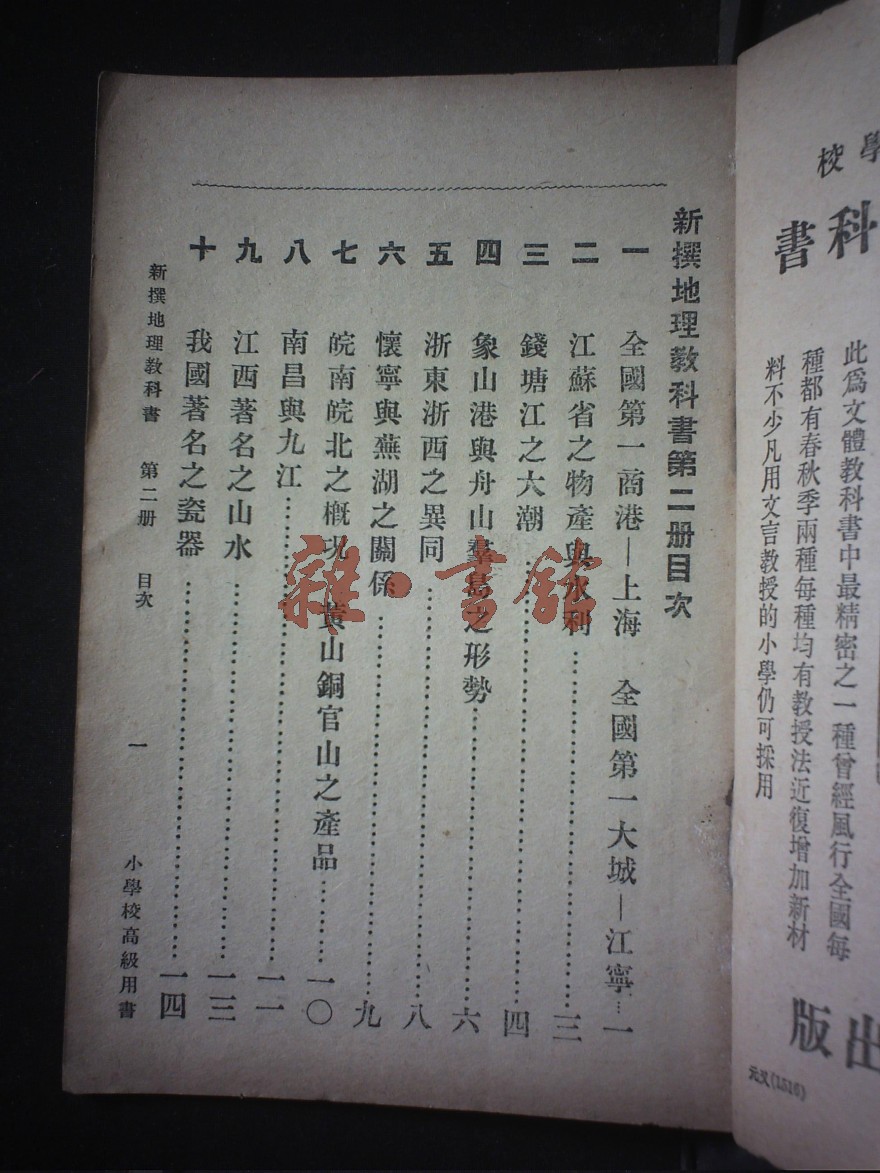 學校
科書
此爲文體教科書中最精密之一種曾經風行全國每
種都有春秋季兩種每種均有教授法近復增加新材
料不少凡用文言教授的小學仍可採用
出版
元又(1516)
新撰地理教科書第二册目次
一 全國第一商港—上海 全國第一大城—江寧…一
二 江蘇省之物產與水利…三
三 錢塘江之大潮…四
四 象山港與舟山羣島之形勢…六
五 浙東浙西之異同…八
六 懷寧與蕪湖之關係…九
七 皖南皖北之槪况 黃山銅官山之產品…一〇
八 南昌與九江…一一
九 江西著名之山水…一三
十 我國著名之瓷器…一四
新撰地理教科書 第二册 目次 一 小學校高級用書
雜·書館